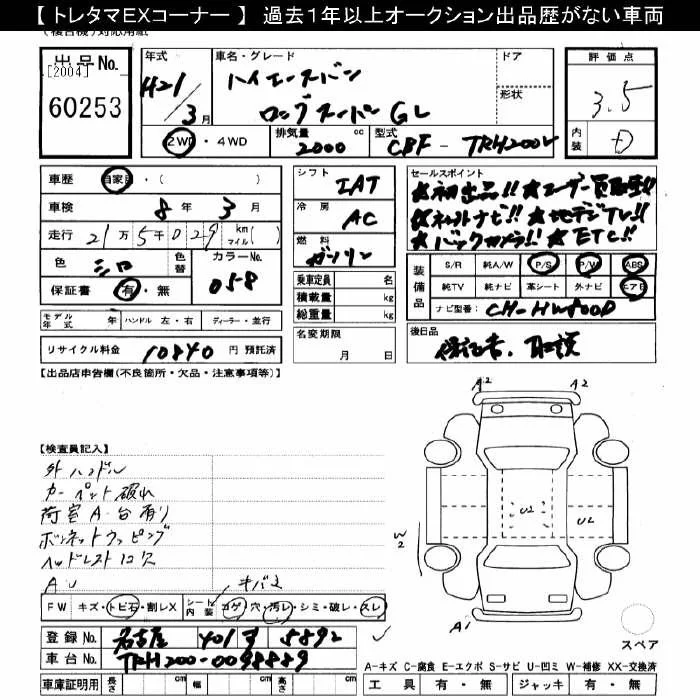 【トレタマEXコーナー】 過去1年以上オークション出品歴がない車両
出品No.
[2004]
60253
年式
H21/3月
車名・グレード
ハイエースバン
ロングスーパーGL
ドア
形状
評価点
3.5
内装
D
2WD・4WD
排気量 2000 cc
型式 CBF-TRH200V
車歴 自家用・( )
車検 8年3月
走行 21万5千029 km マイル( )
色 シロ
色替
カラーNo. 058
保証書 有・無
シフト IAT
冷房 AC
燃料 ガソリン
乗車定員 名
積載量 kg
総重量 kg
セールスポイント
★初出品!! ★ユーザー買取車!!
★ネットナビ!! ★地デジTV!!
★バックカメラ!! ★ETC!!
装備品
S/R 純A/W P/S P/W ABS
純TV 純ナビ 革シート 外ナビ エアB
ナビ型番: CH-HW800D
モデル年式 年 ハンドル 左・右 ディーラー・並行
リサイクル料金 10840 円 預託済
名変期限
月 日
後日品
保証書、取説
【出品店申告欄(不良箇所・欠品・注意事項等)】
【検査員記入】
外ハンドル
カーペット破れ
荷室A・台有り
ボンネットラッピング
ヘッドレスト1コ欠
AU
キバミ
FW キズ・トビ石・割レX
シート内装 コゲ・穴・汚レ・シミ・破レ・スレ
登録No. 名古屋 401す 5892
車台No. TRH200-0098889
車庫証明用 長さ cm 幅 cm 高さ cm
A2 A2
U2 U2
W2
A1
スペア
A-キズ C-腐食 E-エクボ S-サビ U-凹ミ W-補修 XX-交換済
工具 有・無 ジャッキ 有・無